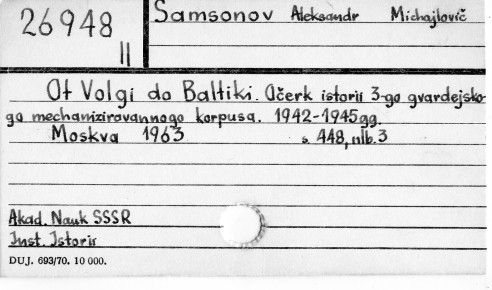 26948
II
Samsonov Aleksandr Michajlovič
Ot Volgi do Baltiki. Očerk istorii 3-go gvardejsko-
go mechanizirovannogo korpusa. 1942-1945 gg.
Moskva 1963 s. 448, nlb. 3
Akad. Nauk SSSR
Inst. Istorii
DUJ. 693/70. 10 000.